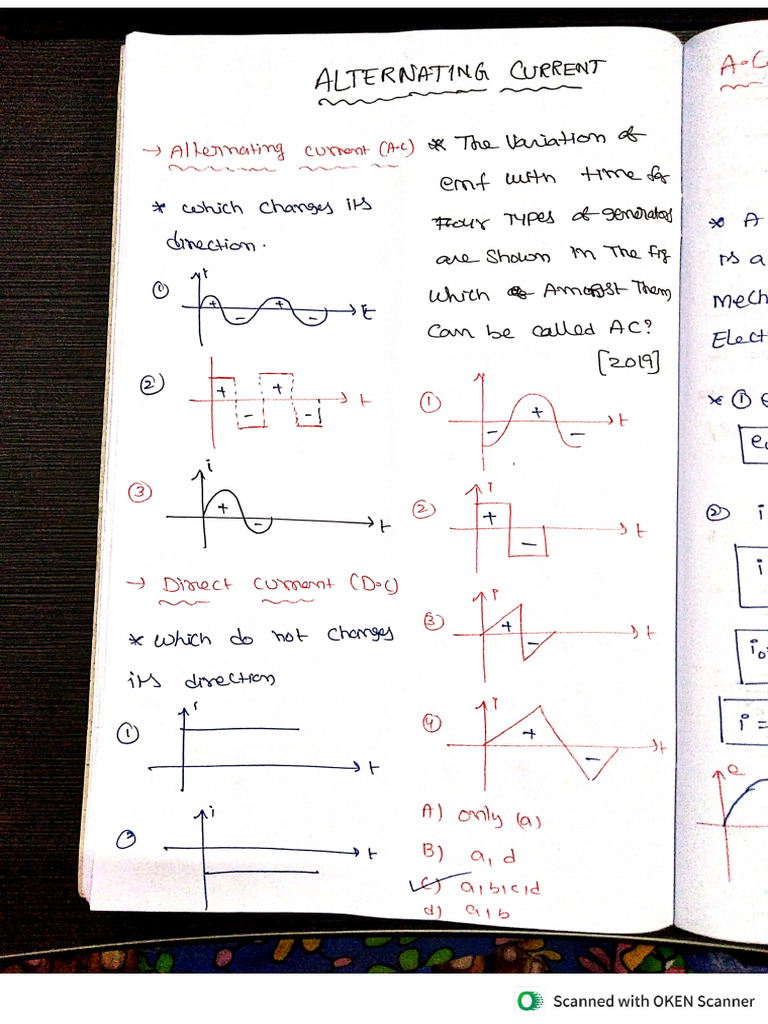 ALTERNATING CURRENT
→ Alternating current (A.C)
* which changes its
direction.
① i t
+ - + -
② t
+ - + -
③ i t
+ -
→ Direct current (D.C)
* which do not changes
its direction
① i t
② i t
* The variation of
emf with time for
Four Types of generators
are shown in The fig
which Amongst Them
can be called AC?
[2019]
① t
- + -
② i t
+ -
③ i t
+ -
④ i t
+ -
A) only (a)
B) a, d
C) a,b,c,d
d) a,b
A.C
* A
is a
mech
Elect
* ①
② i
i
i₀
i =
Q
Scanned with OKEN Scanner